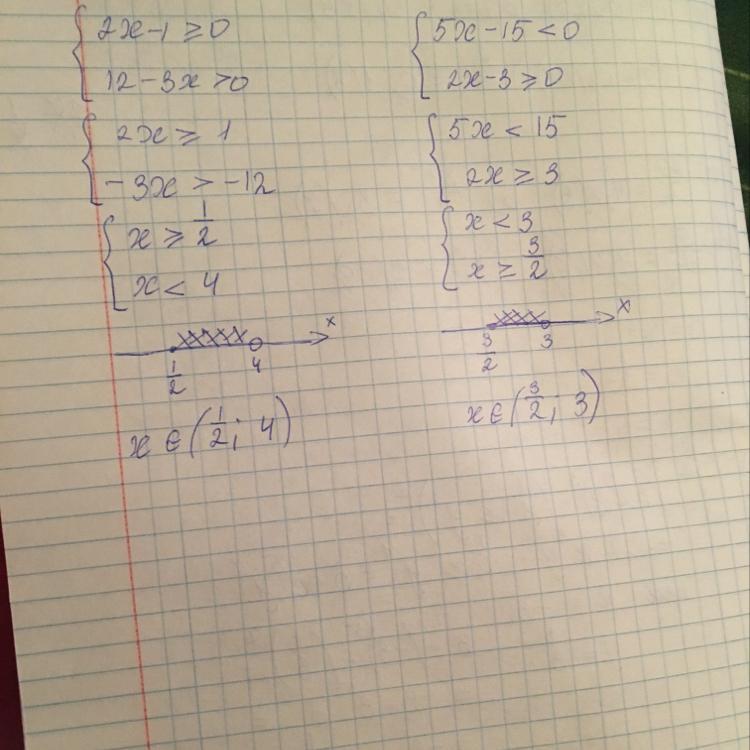 2x-1 ≥ 0
12-3x > 0
2x ≥ 1
-3x > -12
x ≥ 1/2
x < 4
x
1/2 4
x ∈ (1/2; 4)
5x-15 < 0
2x-3 ≥ 0
5x < 15
2x ≥ 3
x < 3
x ≥ 3/2
x
3/2 3
x ∈ (3/2; 3)